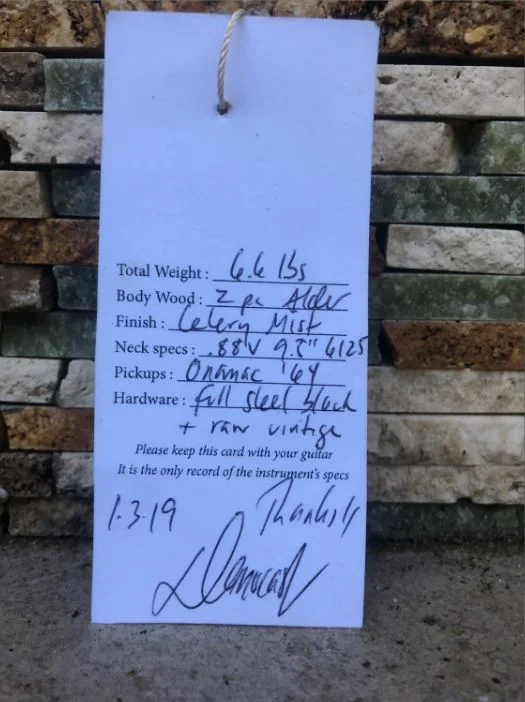 Total Weight : 6.6 lbs
Body Wood : 2 pc Alder
Finish : Celery Mist
Neck specs : .88V 9.5" 6125
Pickups : Onamac '64
Hardware : full steel block
+ raw vintage
Please keep this card with your guitar
It is the only record of the instrument's specs
1.3.19 Thanks!!
Danocaster